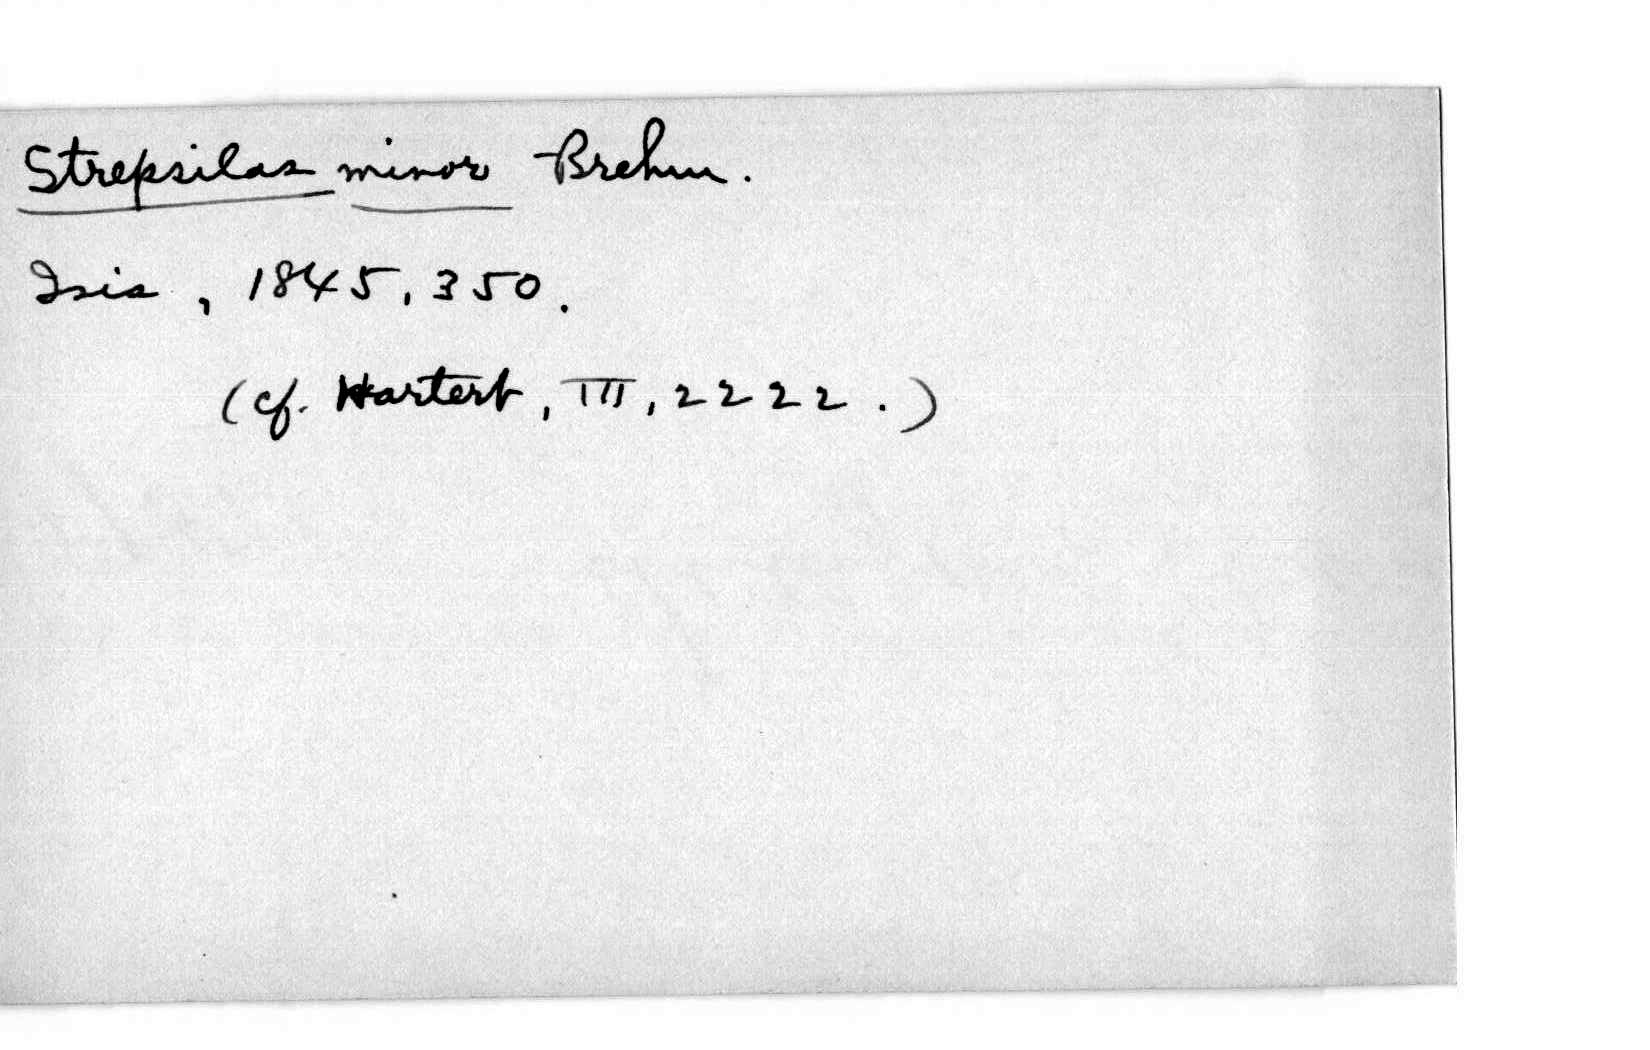 Strepsilas minor Brehm.
Isis, 1845, 350.
(cf. Hartert, III, 2222.)